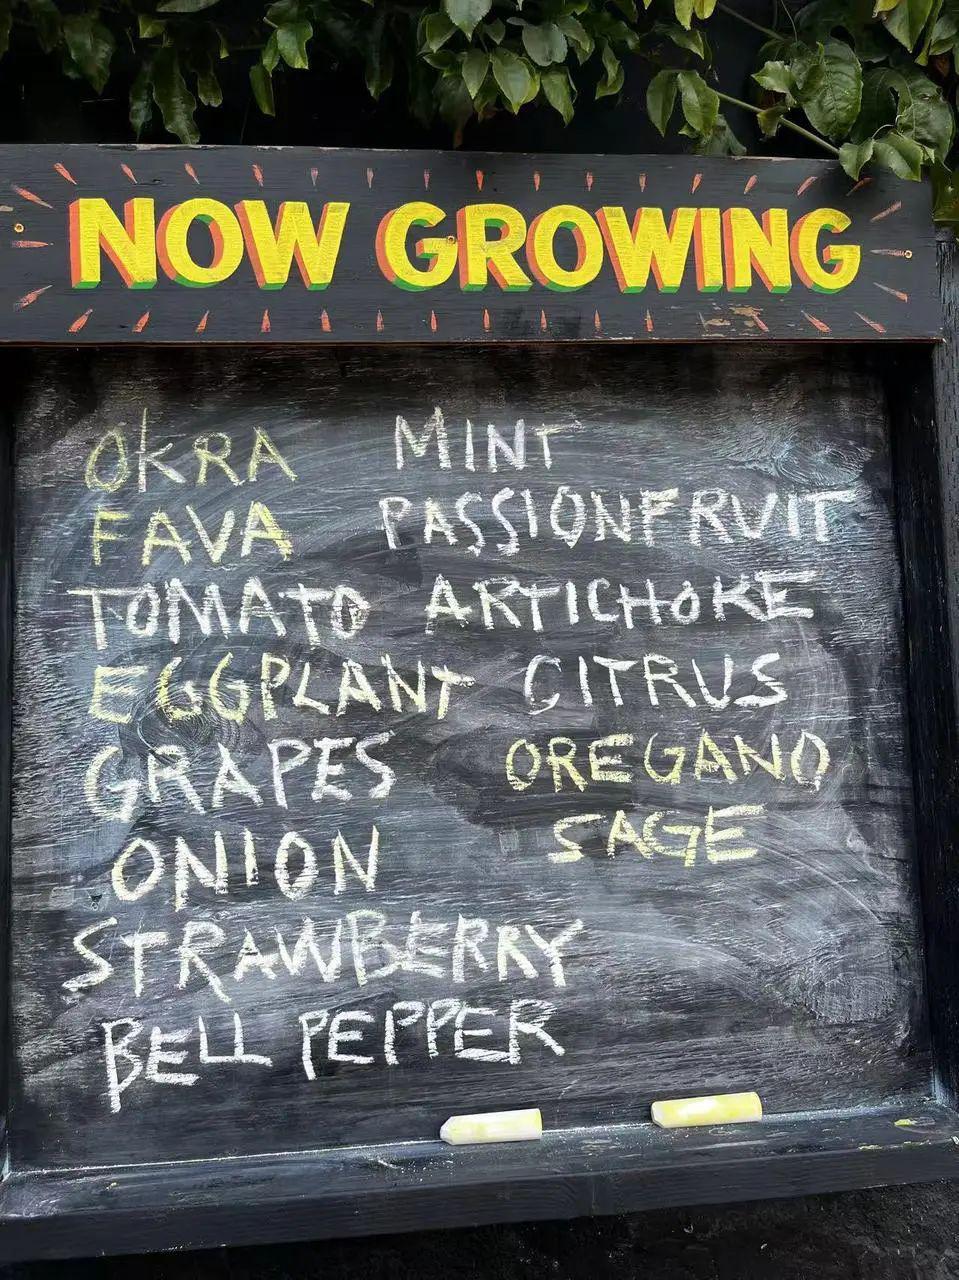 NOW GROWING
OKRA
FAVA
TOMATO
EGGPLANT
GRAPES
ONION
STRAWBERRY
BELL PEPPER
MINT
PASSIONFRUIT
ARTICHOKE
CITRUS
OREGANO
SAGE